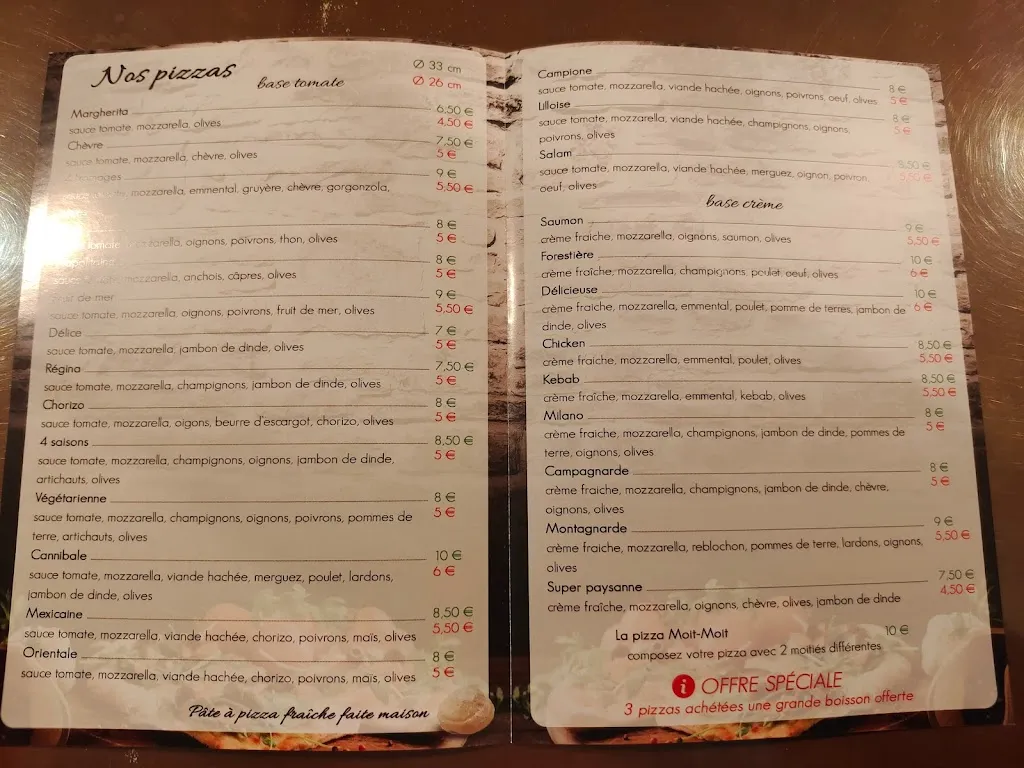 Nos pizzas
base tomate
Ø 33 cm
Ø 26 cm
Margherita 6,50 €
sauce tomate, mozzarella, olives 4,50 €
Chèvre 7,50 €
sauce tomate, mozzarella, chèvre, olives 5 €
fromages 9 €
mozzarella, emmental, gruyère, chèvre, gorgonzola, 5,50 €
8 €
tomate, mozzarella, oignons, poivrons, thon, olives 5 €
8 €
mozzarella, anchois, câpres, olives 5 €
Fruit de mer 9 €
sauce tomate, mozzarella, oignons, poivrons, fruit de mer, olives 5,50 €
Délice 7 €
sauce tomate, mozzarella, jambon de dinde, olives 5 €
Régina 7,50 €
sauce tomate, mozzarella, champignons, jambon de dinde, olives 5 €
Chorizo 8 €
sauce tomate, mozzarella, oigons, beurre d'escargot, chorizo, olives 5 €
4 saisons 8,50 €
sauce tomate, mozzarella, champignons, oignons, jambon de dinde, 5 €
artichauts, olives
Végétarienne 8 €
sauce tomate, mozzarella, champignons, oignons, poivrons, pommes de 5 €
terre, artichauts, olives
Cannibale 10 €
sauce tomate, mozzarella, viande hachée, merguez, poulet, lardons, 6 €
jambon de dinde, olives
Mexicaine 8,50 €
sauce tomate, mozzarella, viande hachée, chorizo, poivrons, maïs, olives 5,50 €
Orientale 8 €
sauce tomate, mozzarella, viande hachée, chorizo, poivrons, maïs, olives 5 €
Pâte à pizza fraîche faite maison
Campione 8 €
sauce tomate, mozzarella, viande hachée, oignons, poivrons, oeuf, olives 5 €
Lilloise 8 €
sauce tomate, mozzarella, viande hachée, champignons, oignons, 5 €
poivrons, olives
Salam 8,50 €
sauce tomate, mozzarella, viande hachée, merguez, oignon, poivron, 5,50 €
oeuf, olives
base crème
Saumon 9 €
crème fraiche, mozzarella, oignons, saumon, olives 5,50 €
Forestière 10 €
crème fraîche, mozzarella, champignons, poulet, oeuf, olives 6 €
Délicieuse 10 €
crème fraiche, mozzarella, emmental, poulet, pomme de terres, jambon de 6 €
dinde, olives
Chicken 8,50 €
crème fraiche, mozzarella, emmental, poulet, olives 5,50 €
Kebab 8,50 €
crème fraîche, mozzarella, emmental, kebab, olives 5,50 €
Milano 8 €
crème fraiche, mozzarella, champignons, jambon de dinde, pommes de 5 €
terre, oignons, olives
Campagnarde 8 €
crème fraiche, mozzarella, champignons, jambon de dinde, chèvre, 5 €
oignons, olives
Montagnarde 9 €
crème fraiche, mozzarella, reblochon, pommes de terre, lardons, oignons, 5,50 €
olives
Super paysanne 7,50 €
crème fraîche, mozzarella, oignons, chèvre, olives, jambon de dinde 4,50 €
La pizza Moit-Moit 10 €
composez votre pizza avec 2 moitiés différentes
i OFFRE SPÉCIALE
3 pizzas achetées une grande boisson offerte